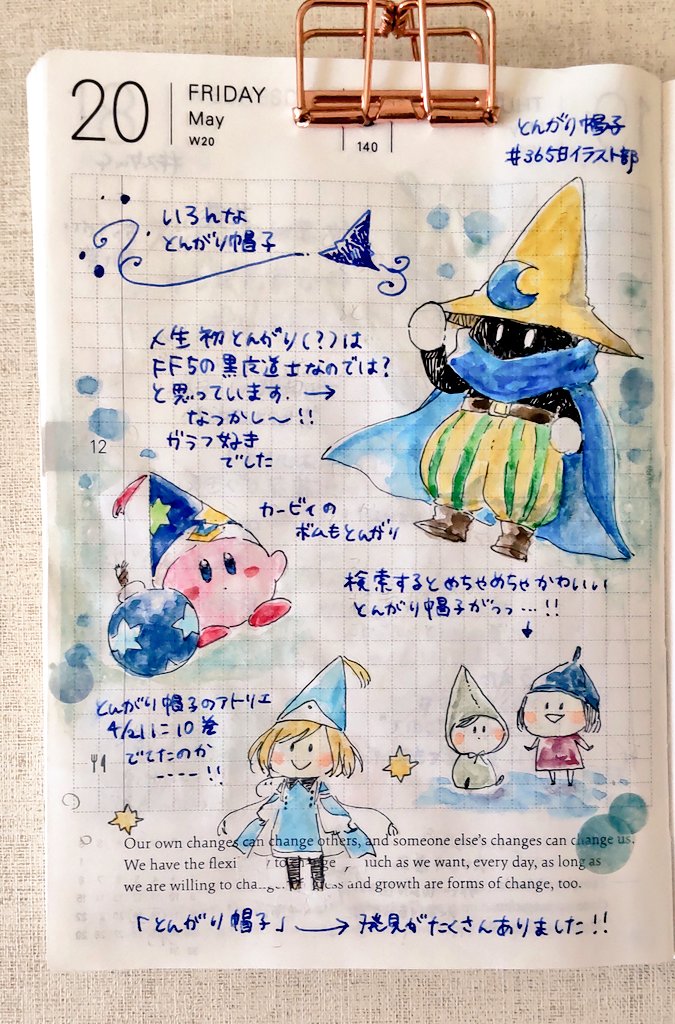 20
FRIDAY
May
W20
140
とんがり帽子
#365日イラスト部
いろんな
とんがり帽子
人生初とんがり(?)は
FF5の黒魔道士なのでは?
と思っています. →
なつかし〜!!
ガラフ好き
でした
12
カービィの
ボムもとんがり
検索するとめちゃめちゃかわいい
とんがり帽子がっっ…!!
↓
とんがり帽子のアトリエ
4/21に10巻
でてたのか
----!!
Our own changes can change others, and someone else's changes can change us.
We have the flexi as much as we want, every day, as long as
we are willing to and growth are forms of change, too.
「とんがり帽子」→ 発見がたくさんありました!!